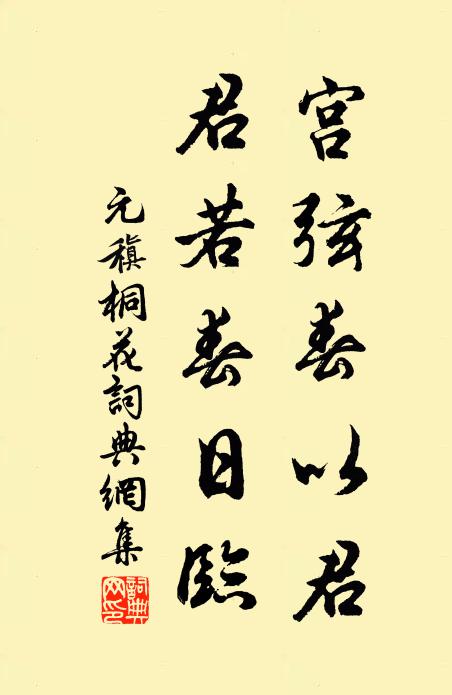 宫弦春以君
君若春日臨
元稹桐花詞典網集
詞典網印